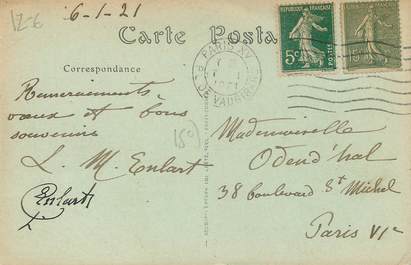 12-6
6-1-21
Carte Posta
RÉPUBLIQUE FRANÇAISE
5c
POSTES
15c
PARIS XV
DE VAUGIRARD
Correspondance
Remerciements
vœux et bons
souvenirs
L. M. Enlart
Enlart
150
Mademoiselle
Odend'hal
38 boulevard St Michel
Paris VIe